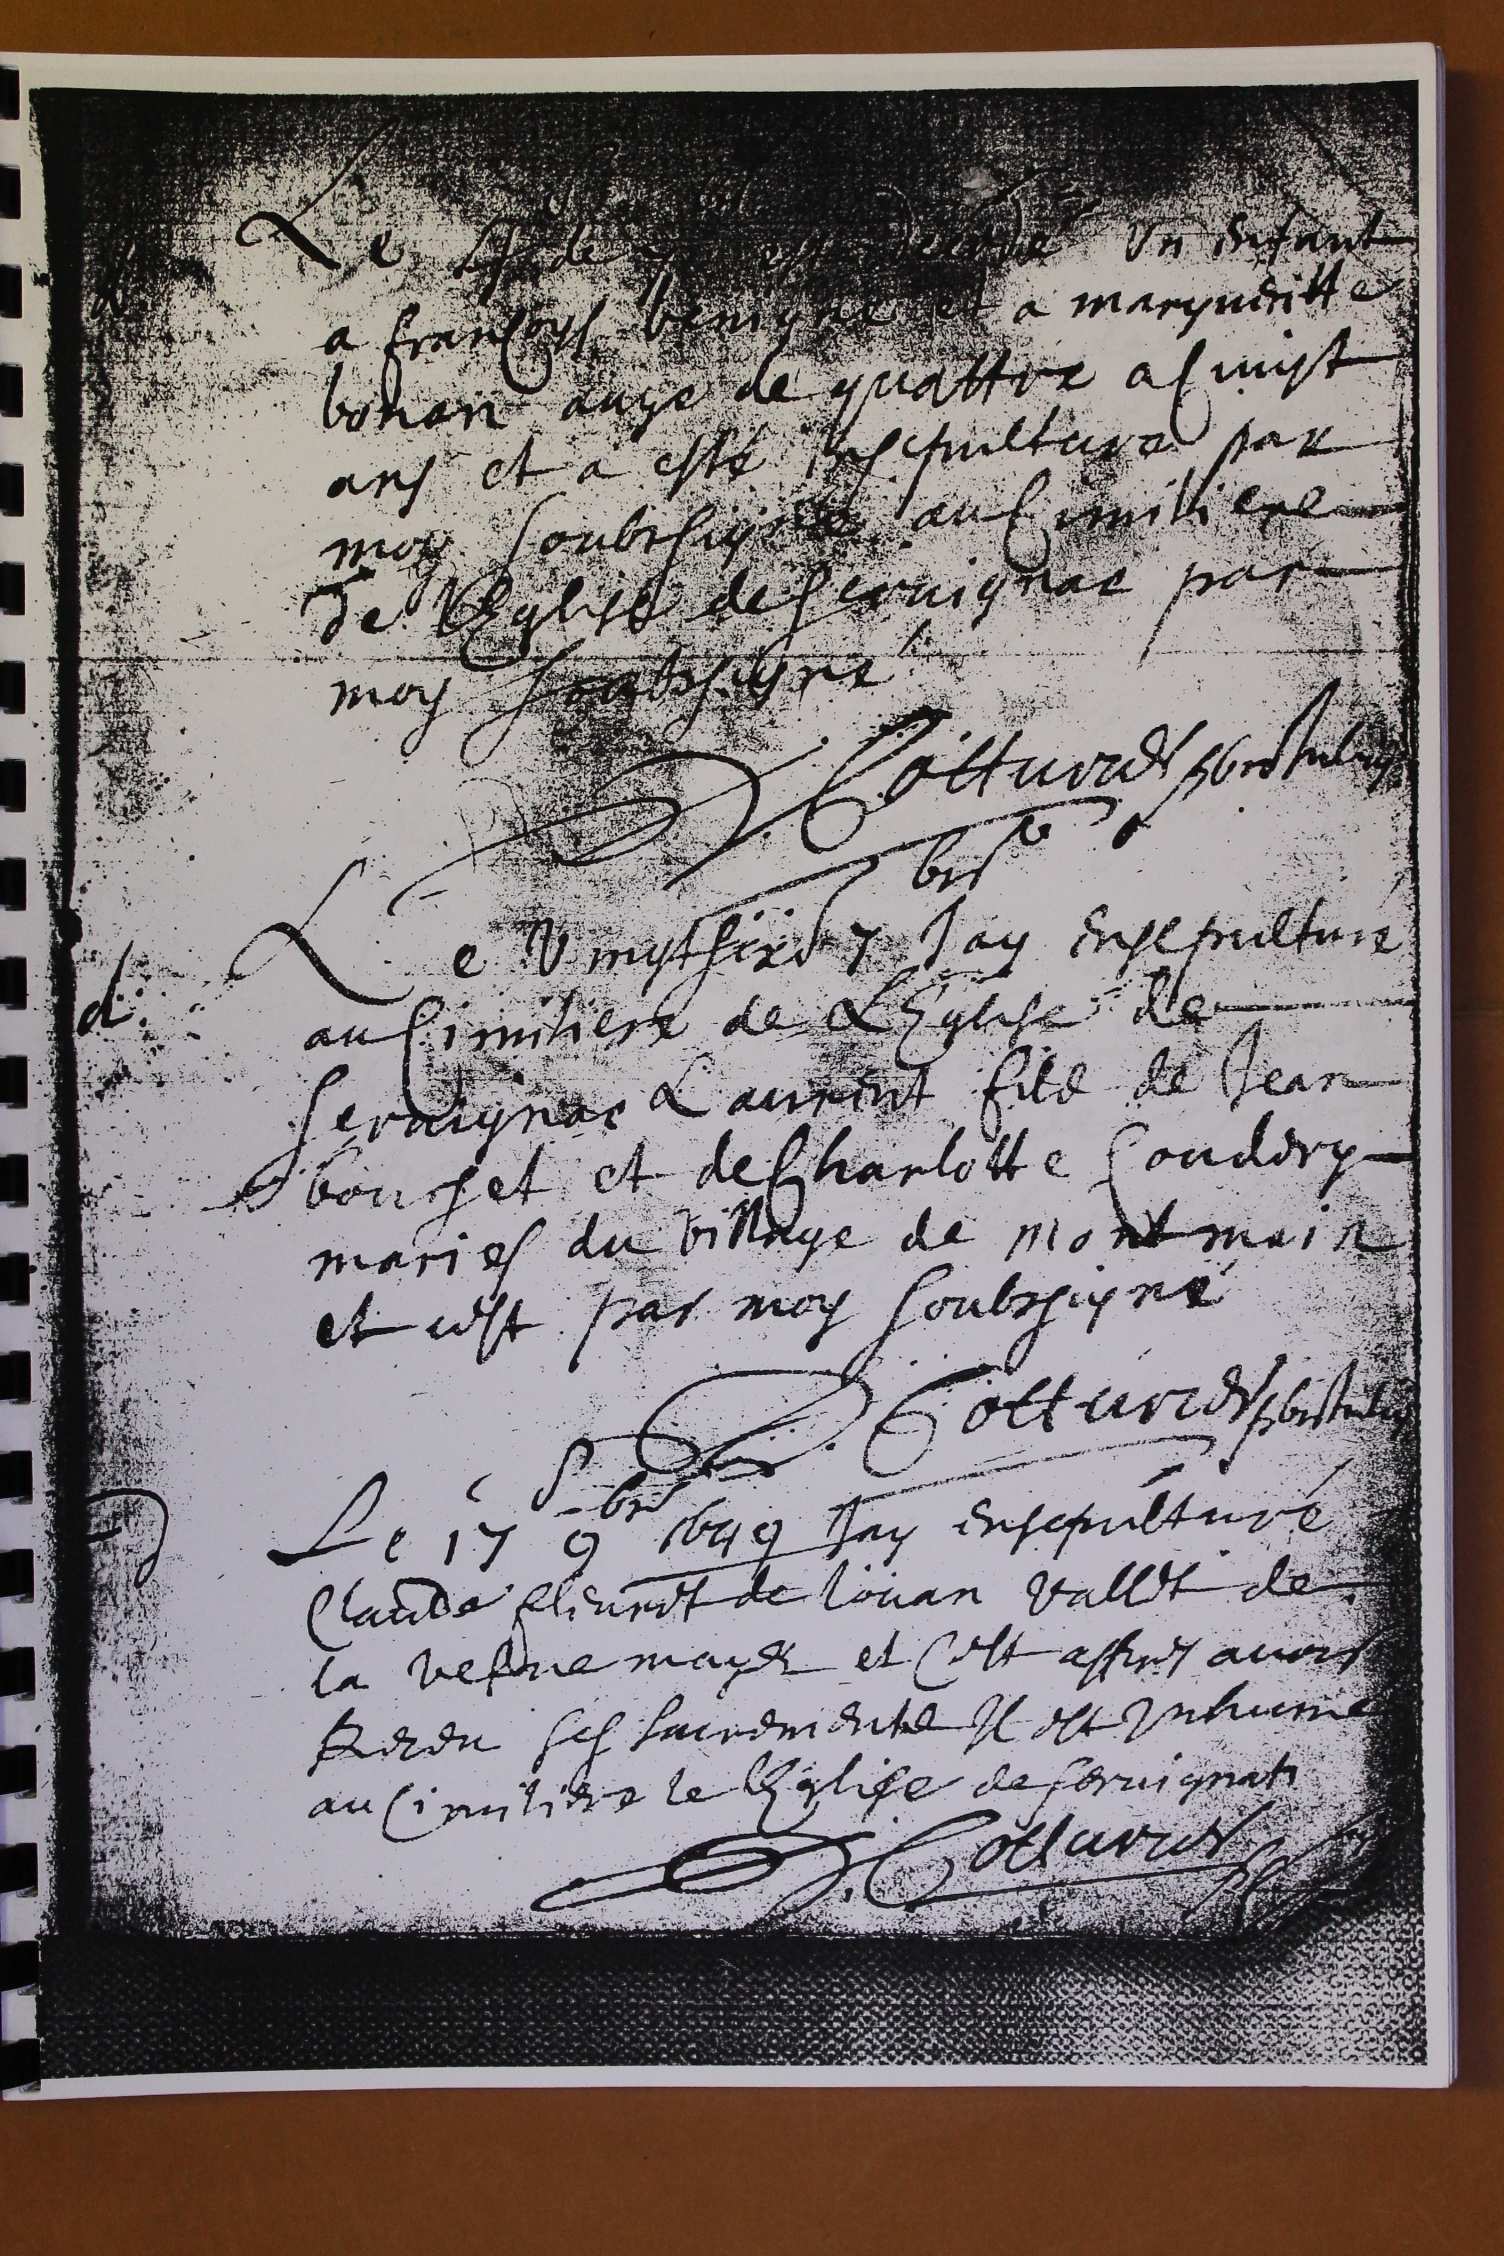 Le de est decede Un enfant
a françoys benigne et a margueritte
bonan auge de quattre a Cinqt
ans et a esté ensepulture par
moy soubssigné au Cimitiere
de l'Eglise de Servignac par
moy soubssigné
Cotturier pbr
bre
d. Le Vingtsixe 7 Jay ensepulturé
au Cimitiere de L'Eglise de
Servignac Laurent filz de Jean
bousset et de Charlotte Coudery
mariés du village de Montmain
et c'est par moy soubsigné
Cotturier pbr
bre
d Le 17 9 1649 Jay ensepulturé
Claude de louan vallet de
la et c'est appres avoir
Receu ses sacremente Il est Inhumé
au Cimitiere de l'Eglise de servignat
Cotturier